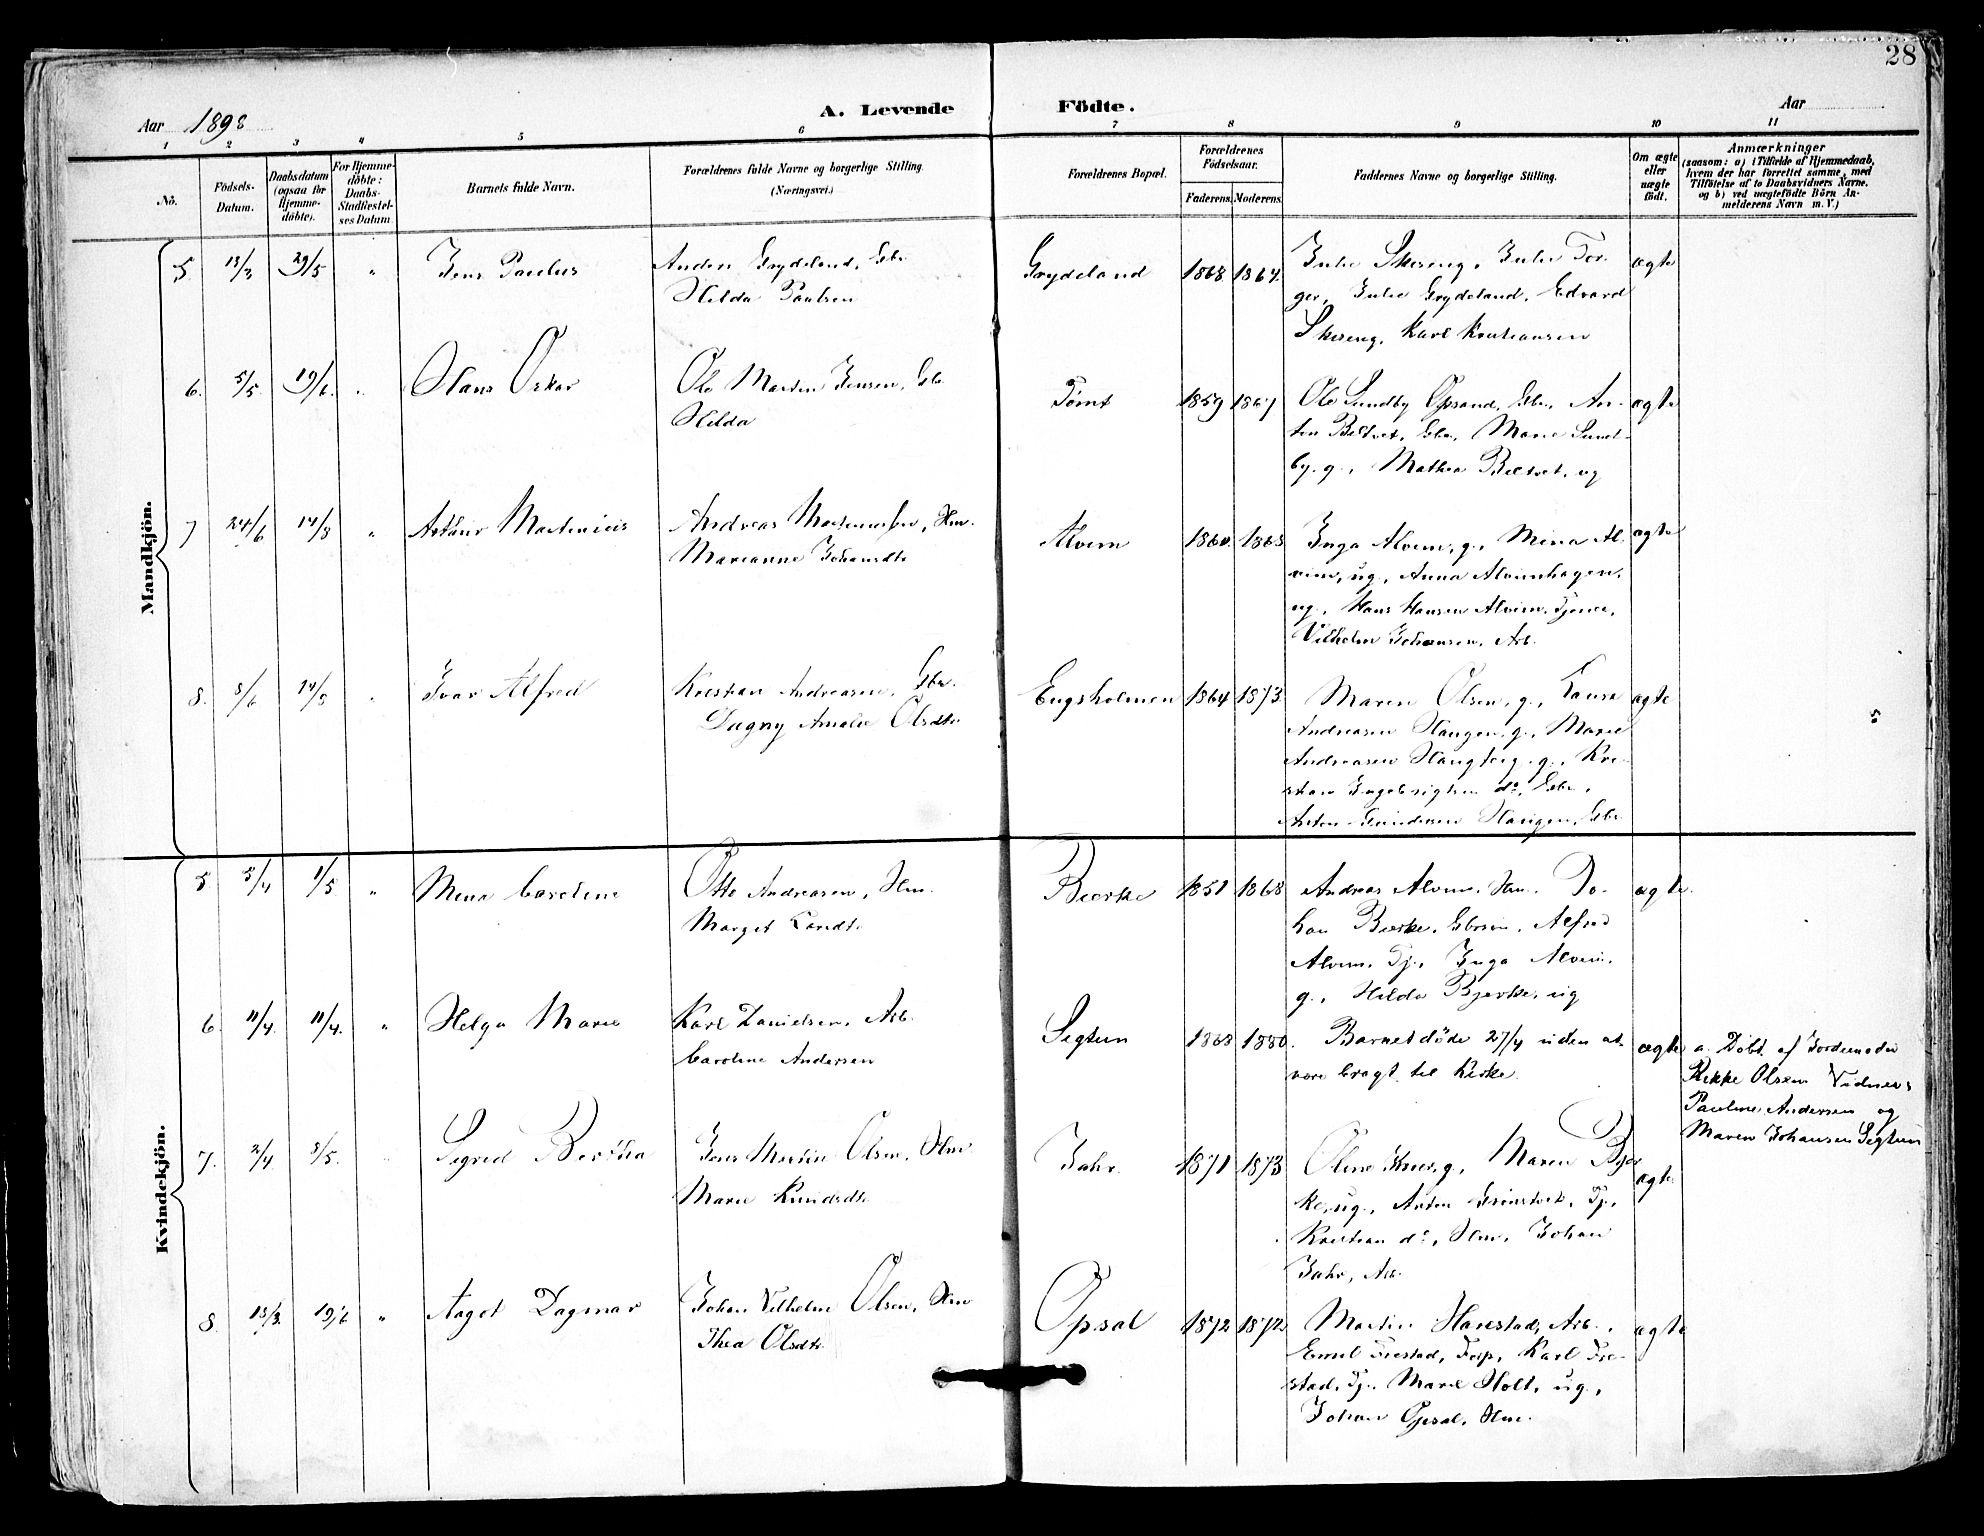 28
Aar 1898
A. Levende
Födte.
Aar
1 2 3 4 5 6 7 8 9 10 11
No.
Födsels-Datum.
Daabsdatum (ogsaa for Hjemme-döbte).
For Hjemme-döbte: Daabs-Stadfæstel-ses Datum
Barnets fulde Navn.
Forældrenes fulde Navne og borgerlige Stilling.
(Næringsvei.)
Forældrenes Bopæl.
Forældrenes Födselsaar.
Faderens Moderens
Faddernes Navne og borgerlige Stilling.
Om ægte eller uægte födt.
Anmærkninger
(saasom: a) i Tilfælde af Hjemmedaab,
hvem der har forrettet samme, med
Tilföielse af to Daabsvidners Navne.
og b) ved uægtefödte Börn An-
melderens Navn m. V.)
Mandkjön.
5. 13/3 29/5 " Jens Paulus
Anders Grydeland, Gbr.
Hilda Paulsen
Grydeland 1868 1864.
Julie Skjereng, Julie Tor-
ger, Julie Grydeland, Edvard
Skjereng, Karl Kristiansen
ægte
6. 5/5 19/6. " Hans Oskar
Ole Martin Jensen, Gbr
Hilda
Tomt 1859 1867
Ole Sundby Opsand, Gbr., An-
ton Biltvet, Gbr, Marie Sund-
by. g., Mathea Biltvet, ug
ægte
7 24/6 14/8 " Artur Martinius
Andreas Martinussen, Hm.
Marianne Johansdtr
Alvim 1860. 1863
Inga Alvim, g., Mina Al-
vim, ug., Anna Alvimhagen,
ug., Hans Hansen Alvim, Tjener,
Vilhelm Johansen, Arb.
ægte
8. 8/6 14/8 " Ivar Alfred
Kristian Andreasen, Gbr.
Dagny Amalie Olsdtr
Engsholmen 1864 1873.
Maren Olsen, g., Laura
Andreasen Haugen, g., Marie
Andreasen Haugberg, g., Kri-
stian Ingebrigtsen do, Gbr.,
Anton Gundersen Haugen, Gbr
ægte
Kvindekjön.
5 5/4 1/5 " Mina Caroline
Otto Andreasen, Hm.
Margit Larsdtr
Bjerke 1851 1868
Andreas Alvim, Hm. Jo-
han Bjerke, Gbrsön, Alfred
Alvim, Tj., Inga Alvim,
g., Hilda Bjerke, ug
ægte.
6. 11/4. 11/4. " Helga Marie
Karl Danielsen, Arb.
Caroline Andersen
Segtun 1868 1880.
Barnet döde 27/4 uden at
være bragt til Kirke.
ægte
a. Döbt af Jordemoder
Rikke Olsen Vidner:
Pauline Andersen og
Maren Johansen Segtun
7. 2/4 8/5. Sigrid Bertha
Jens Martin Olsen, Hm
Marie Knudsdtr
Jahr. 1871 1873
Oline, g., Maren Bjer-
ke, ug., Anton Grinitvet, Tj.,
Kristian do, Hm, Johan
Jahr, Arb.
ægte
8. 13/3. 19/6 " Aagot Dagmar
Johan Vilhelm Olsen, Hm
Thea Olsdtr.
Opsal 1872 1872
Martin Harestad, Arb.,
Emil Frestad, Forp, Karl Fre-
stad, Tj., Marie Holt, ug.,
Johan Opsal, Hm.
ægte